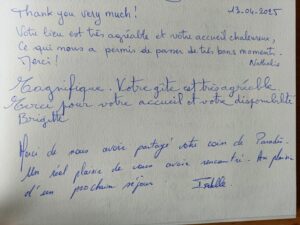 Thank you very much! 13.04.2025
Votre lieu est très agréable et votre accueil chaleureux,
Ce qui nous a permis de passer de très bons moments.
Merci! Nathalie
Magnifique. Votre gîte est très agréable
Merci pour votre accueil et votre disponibilité
Brigitte
Merci de nous avoir partagé votre coin de Paradis.
Un réel plaisir de vous avoir rencontré. Au plaisir
d'un prochain séjour Isabelle